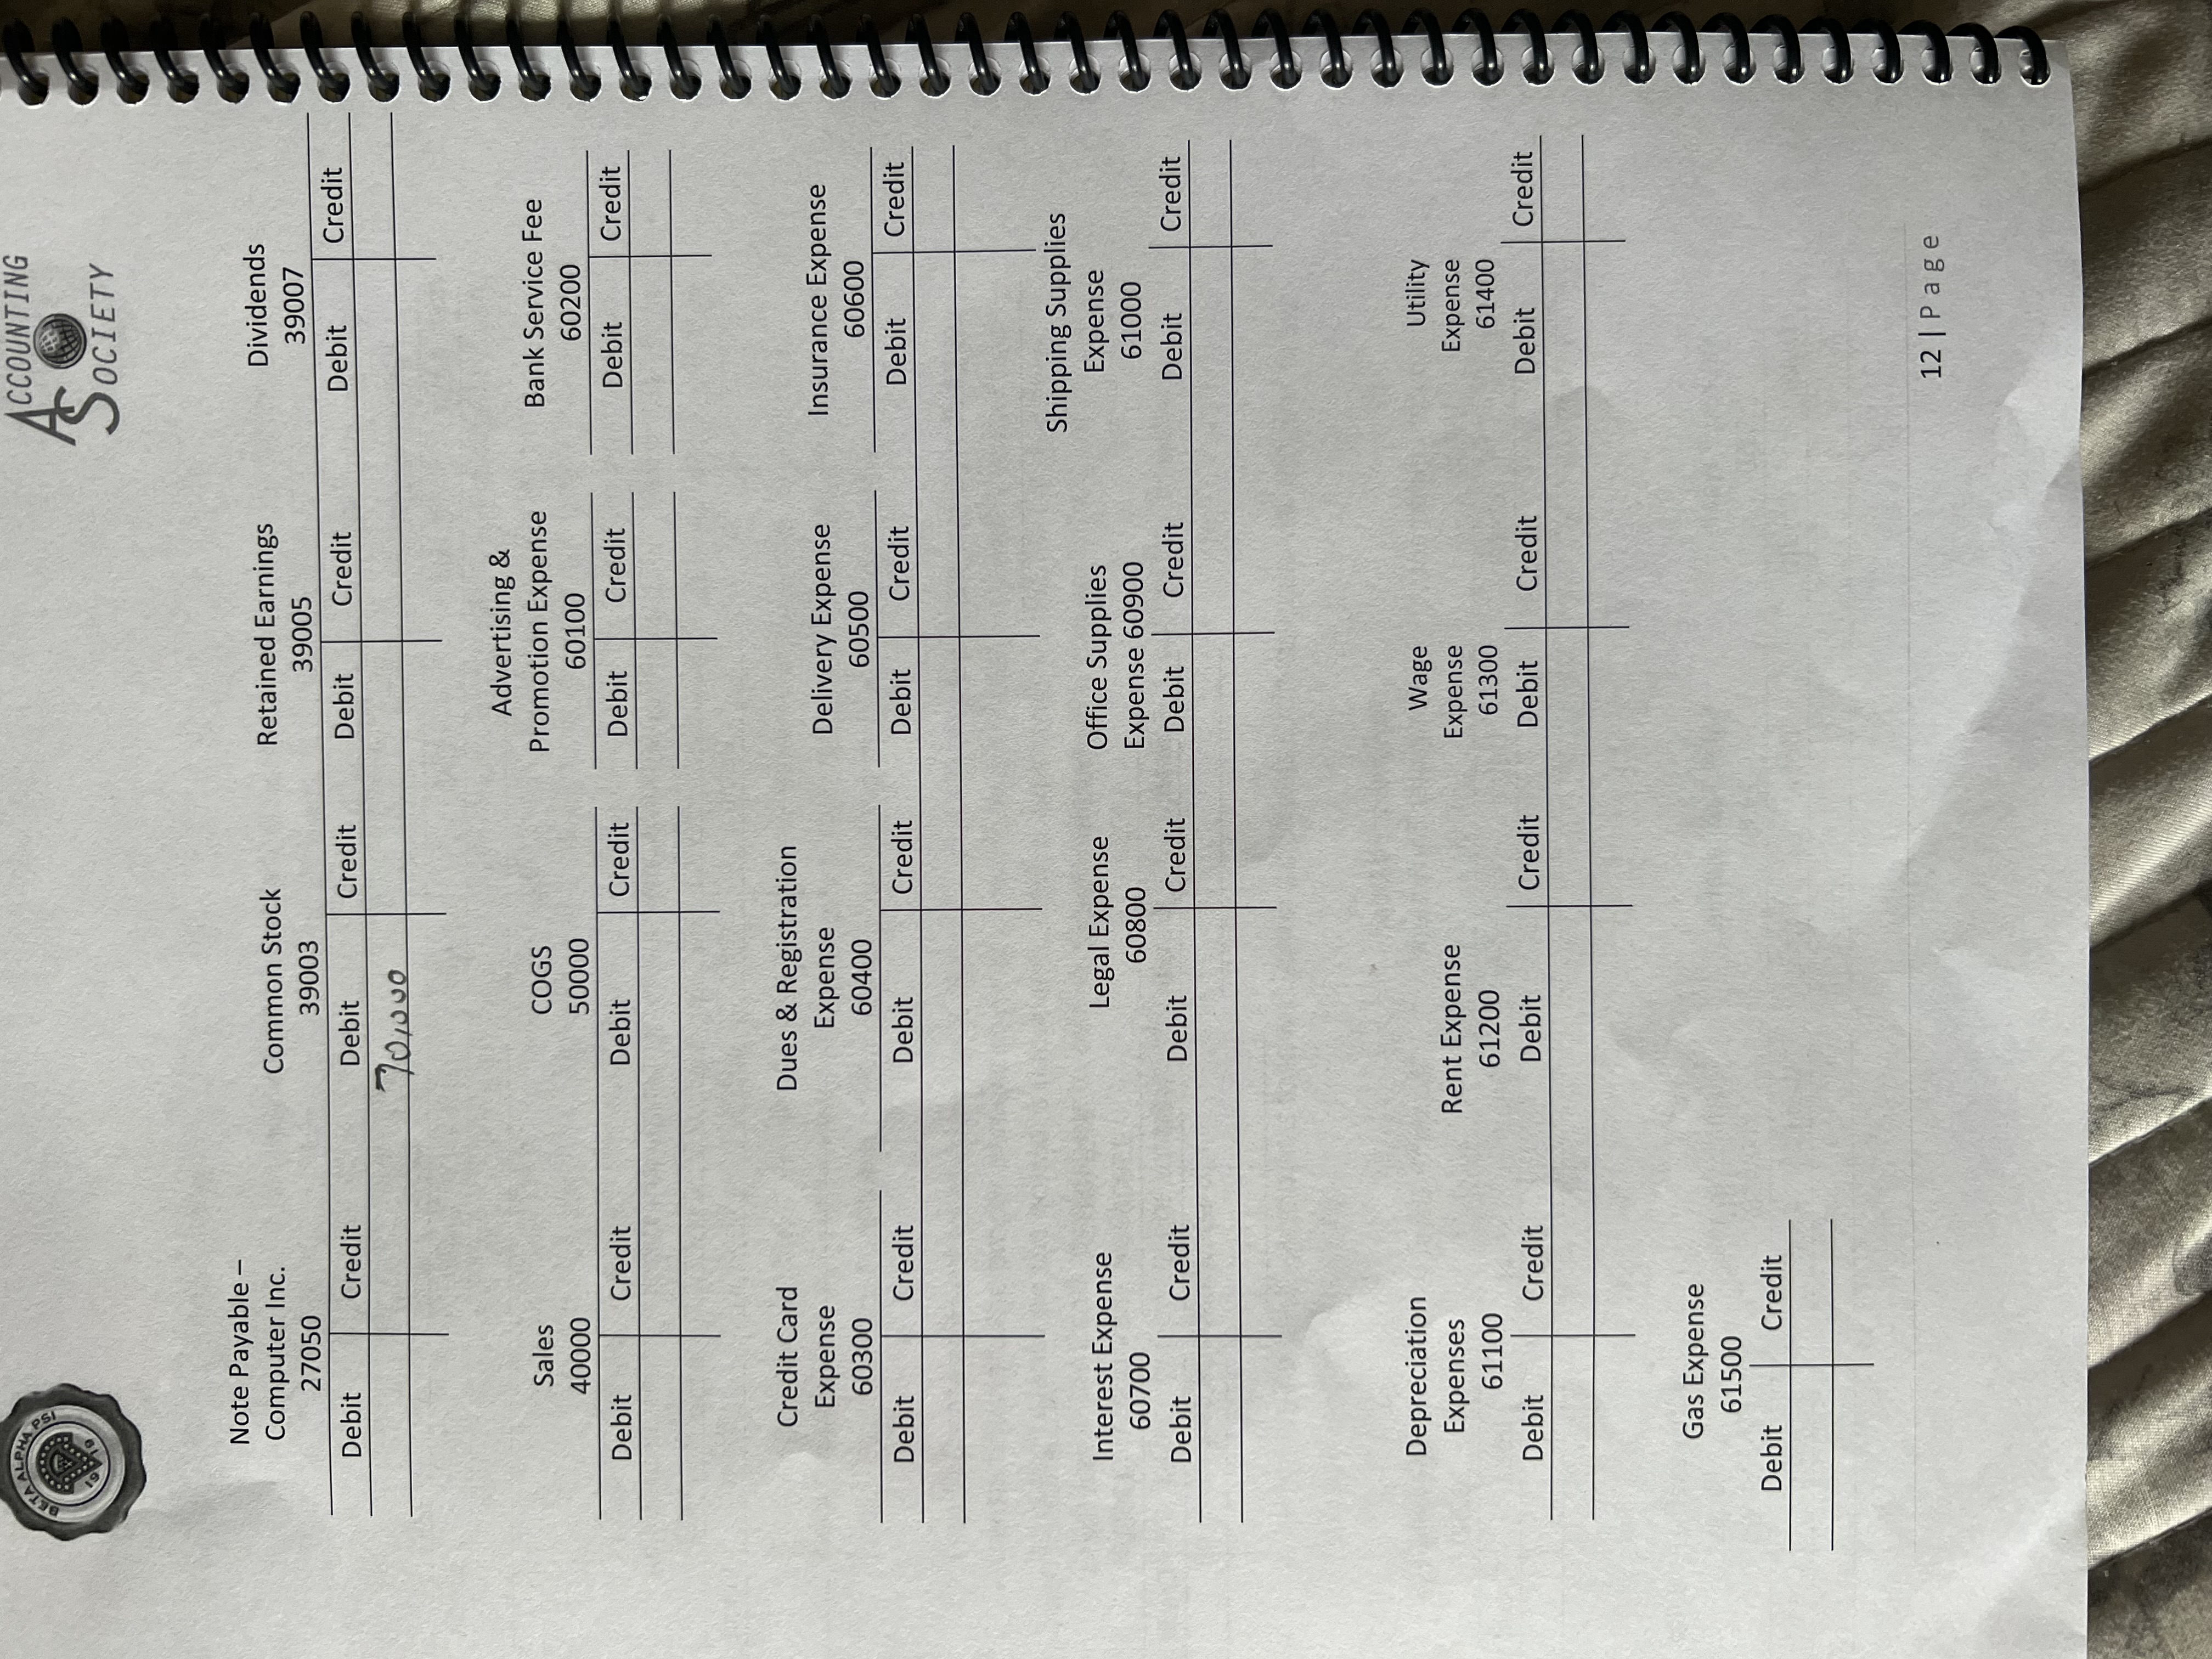 BETA ALPHA PSI
1919
ACCOUNTING
SOCIETY
Note Payable – Computer Inc. 27050
Common Stock 39003
Retained Earnings 39005
Dividends 39007
Debit Credit Debit Credit Debit Credit Debit Credit
70,000
Sales 40000
COGS 50000
Advertising & Promotion Expense 60100
Bank Service Fee 60200
Debit Credit Debit Credit Debit Credit Debit Credit
Credit Card Expense 60300
Dues & Registration Expense 60400
Delivery Expense 60500
Insurance Expense 60600
Debit Credit Debit Credit Debit Credit Debit Credit
Interest Expense 60700
Legal Expense 60800
Office Supplies Expense 60900
Shipping Supplies Expense 61000
Debit Credit Debit Credit Debit Credit Debit Credit
Depreciation Expenses 61100
Rent Expense 61200
Wage Expense 61300
Utility Expense 61400
Debit Credit Debit Credit Debit Credit Debit Credit
Gas Expense 61500
Debit Credit
12 | Page